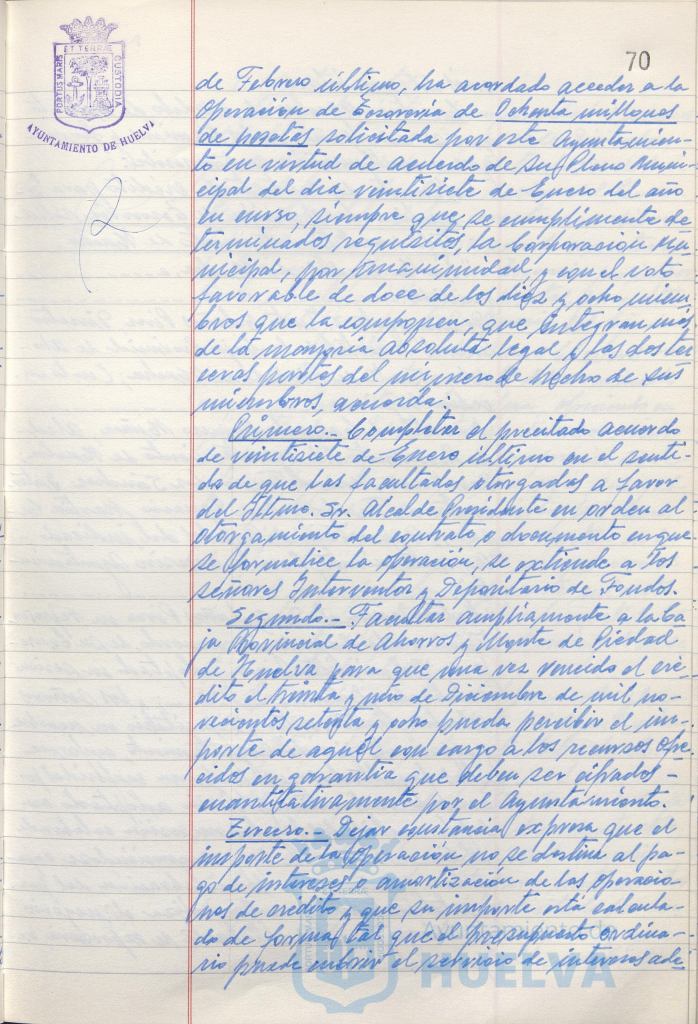 70
PORTUS MARIS ET TERRÆ CUSTODIA
AYUNTAMIENTO DE HUELVA
de Febrero último, ha acordado acceder a la
Operación de Tesorería de Ochenta millones
de pesetas solicitada por este Ayuntamien-
to en virtud de acuerdo de su Pleno Muni-
cipal del día veintisiete de Enero del año
en curso, siempre que se cumplimente de-
terminados requisitos, la Corporación Mu-
nicipal, por unanimidad y con el voto
favorable de doce de los diez y ocho miem-
bros que la componen, que integran más
de la mayoría absoluta legal y las dos ter-
ceras partes del número de hecho de sus
miembros, acuerda:
Primero.- Completar el precitado acuerdo
de veintisiete de Enero último en el senti-
do de que las facultades otorgadas a favor
del Iltmo. Sr. Alcalde Presidente en orden al
otorgamiento del contrato o documento en que
se formalice la operación, se extiende a los
señores Interventor y Depositario de Fondos.
Segundo.- Facultar ampliamente a la Ca-
ja Provincial de Ahorros y Monte de Piedad
de Huelva para que una vez vencido el cré-
dito el treinta y uno de Diciembre de mil no-
vecientos setenta y ocho pueda percibir el im-
porte de aquél con cargo a los recursos ofre-
cidos en garantía que deben ser cifrados -
cuantitativamente por el Ayuntamiento.
Tercero.- Dejar constancia expresa que el
importe de la Operación no se destina al pa-
go de intereses o amortización de las operacio-
nes de crédito y que su importe está calcula-
do de forma tal que el presupuesto ordina-
rio puede cubrir el servicio de intereses adi
HUELVA